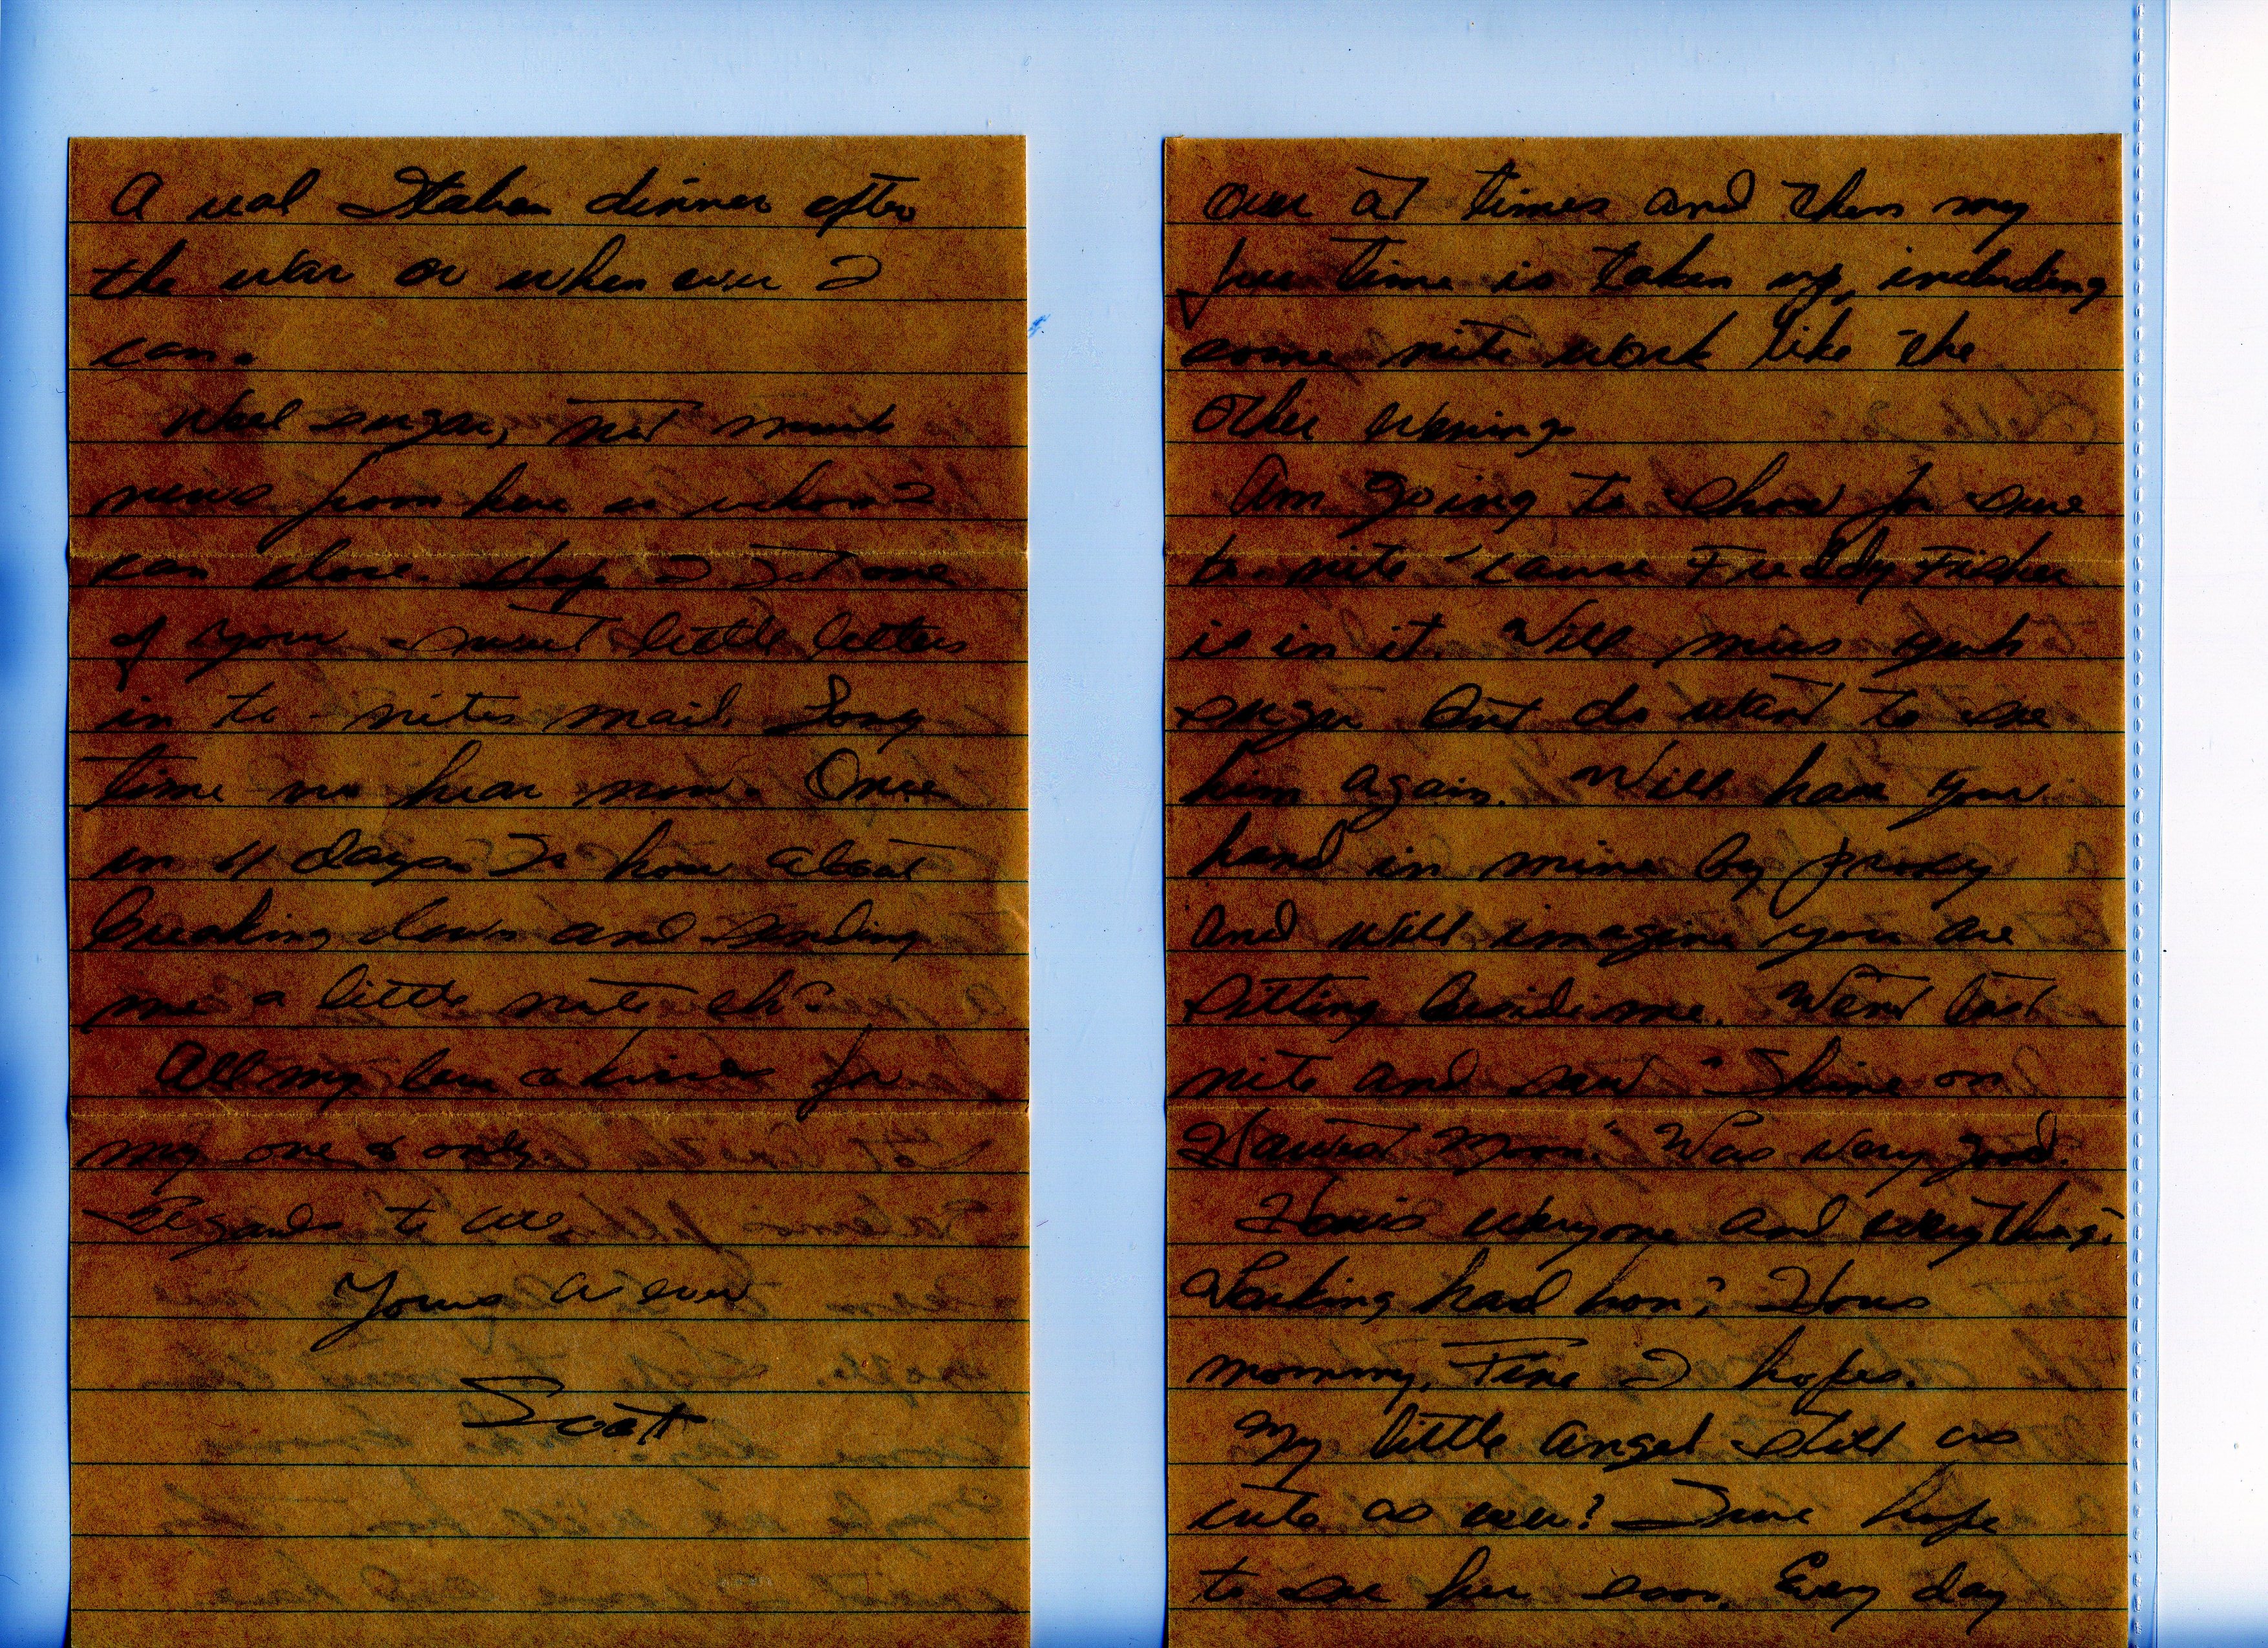 A real Italian dinner after
the war or when ever I
can.
Well sugar, not much
news from here so when I
can close. Hope I get one
of your sweet little letters
in to-nites mail. Long
time no hear now. Once
in 11 days. So how about
breaking down and sending
me a little note eh?
All my love & kisses for
my one & only
Regards to all
Yours as ever
Scott
over at times and then my
free time is taken up, including
some nite work like the
other evening
Am going to show for sure
to-nite 'cause Freddy Fisher
is in it. Will miss yuh
sugar but do want to see
him again. Will have your
hand in mine by proxy
and will imagine you are
sitting beside me. Went last
nite and saw "Shine on
Harvest Moon." Was very good.
Hows everyone and everything.
Working hard hon? Hows
mommy, Fine I hopes.
My little angel still as
cute as ever? Sure hope
to see her soon. Every day